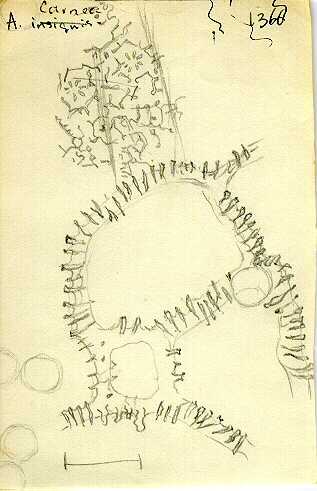 Carnea
A. insignis
1360